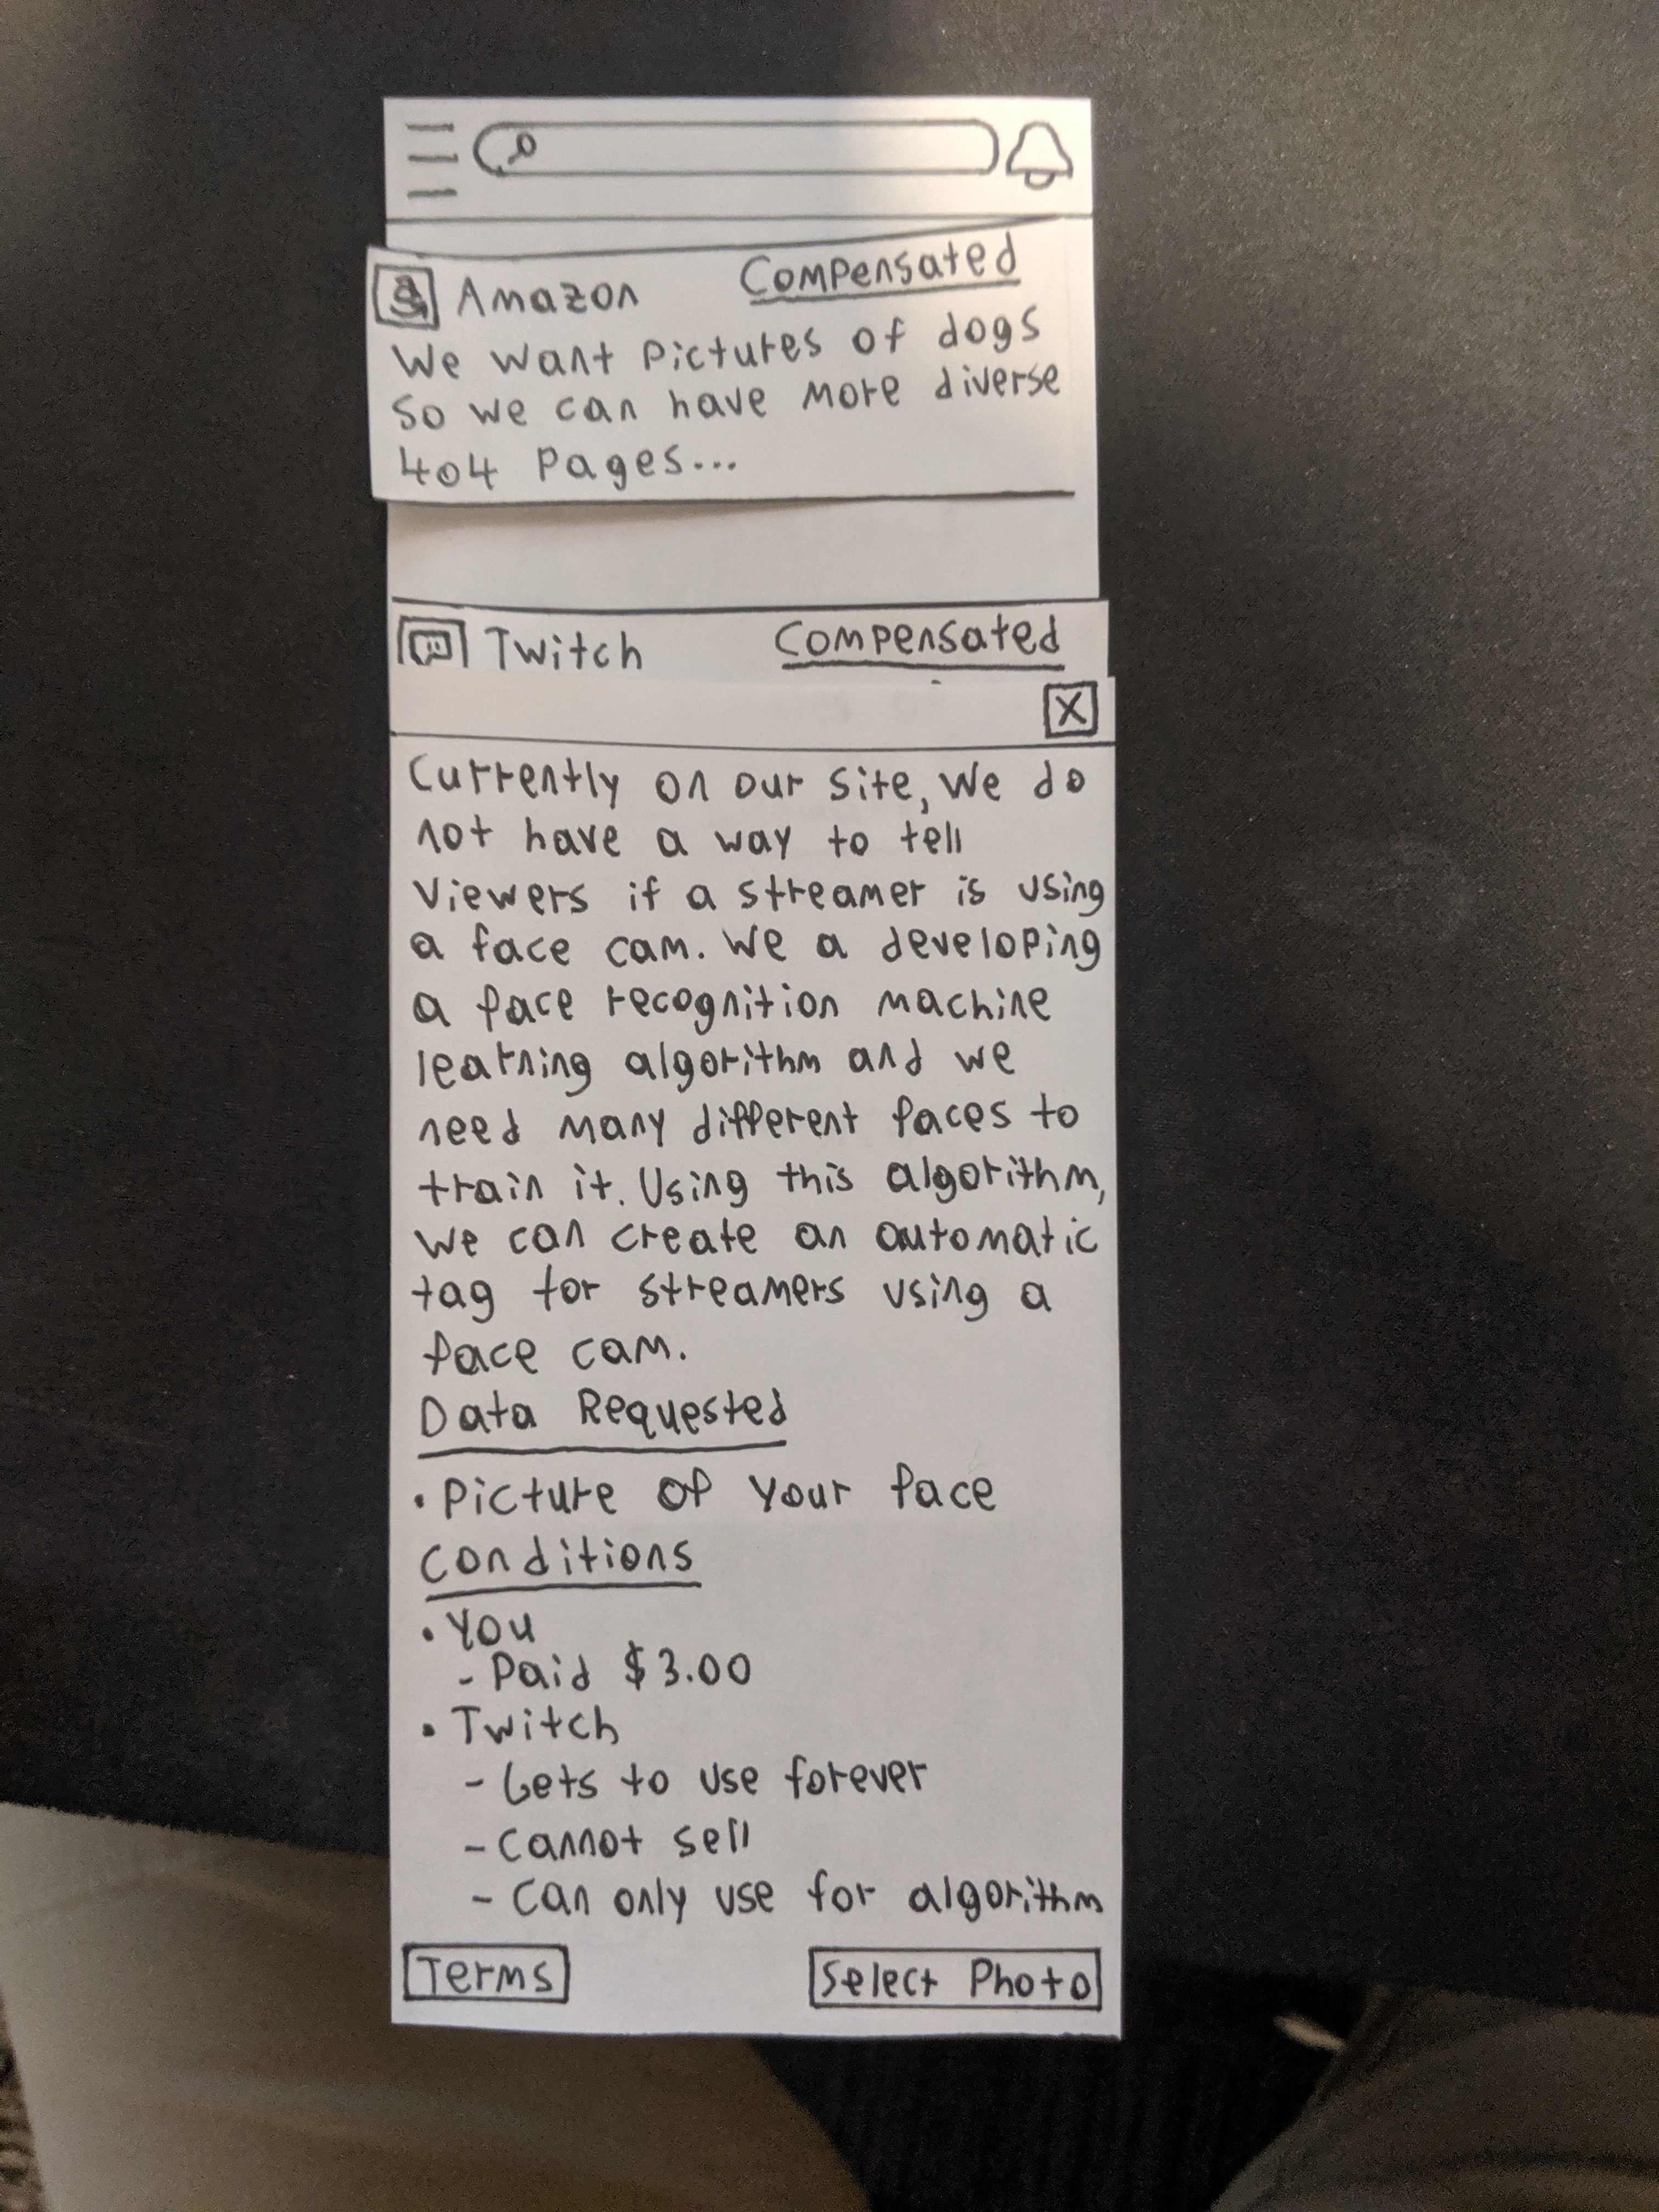 Amazon Compensated
We want pictures of dogs
so we can have more diverse
404 Pages...
Twitch Compensated
X
Currently on our site, we do
not have a way to tell
viewers if a streamer is using
a face cam. We a developing
a face recognition machine
learning algorithm and we
need many different faces to
train it. Using this algorithm,
we can create an automatic
tag for streamers using a
face cam.
Data Requested
• Picture of your face
Conditions
• You
- Paid $3.00
• Twitch
- Gets to use forever
- Cannot sell
- Can only use for algorithm
Terms Select Photo